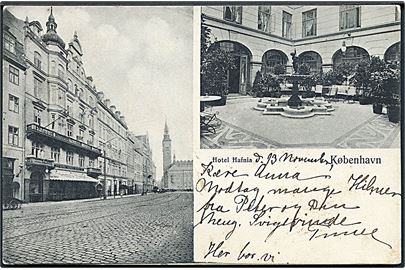 Hotel Hafnia
København
d. 23 November
Kære Anna
Modtag mange Hilsner
fra Peter og Din
heng. Svigerinde
Her bor vi.